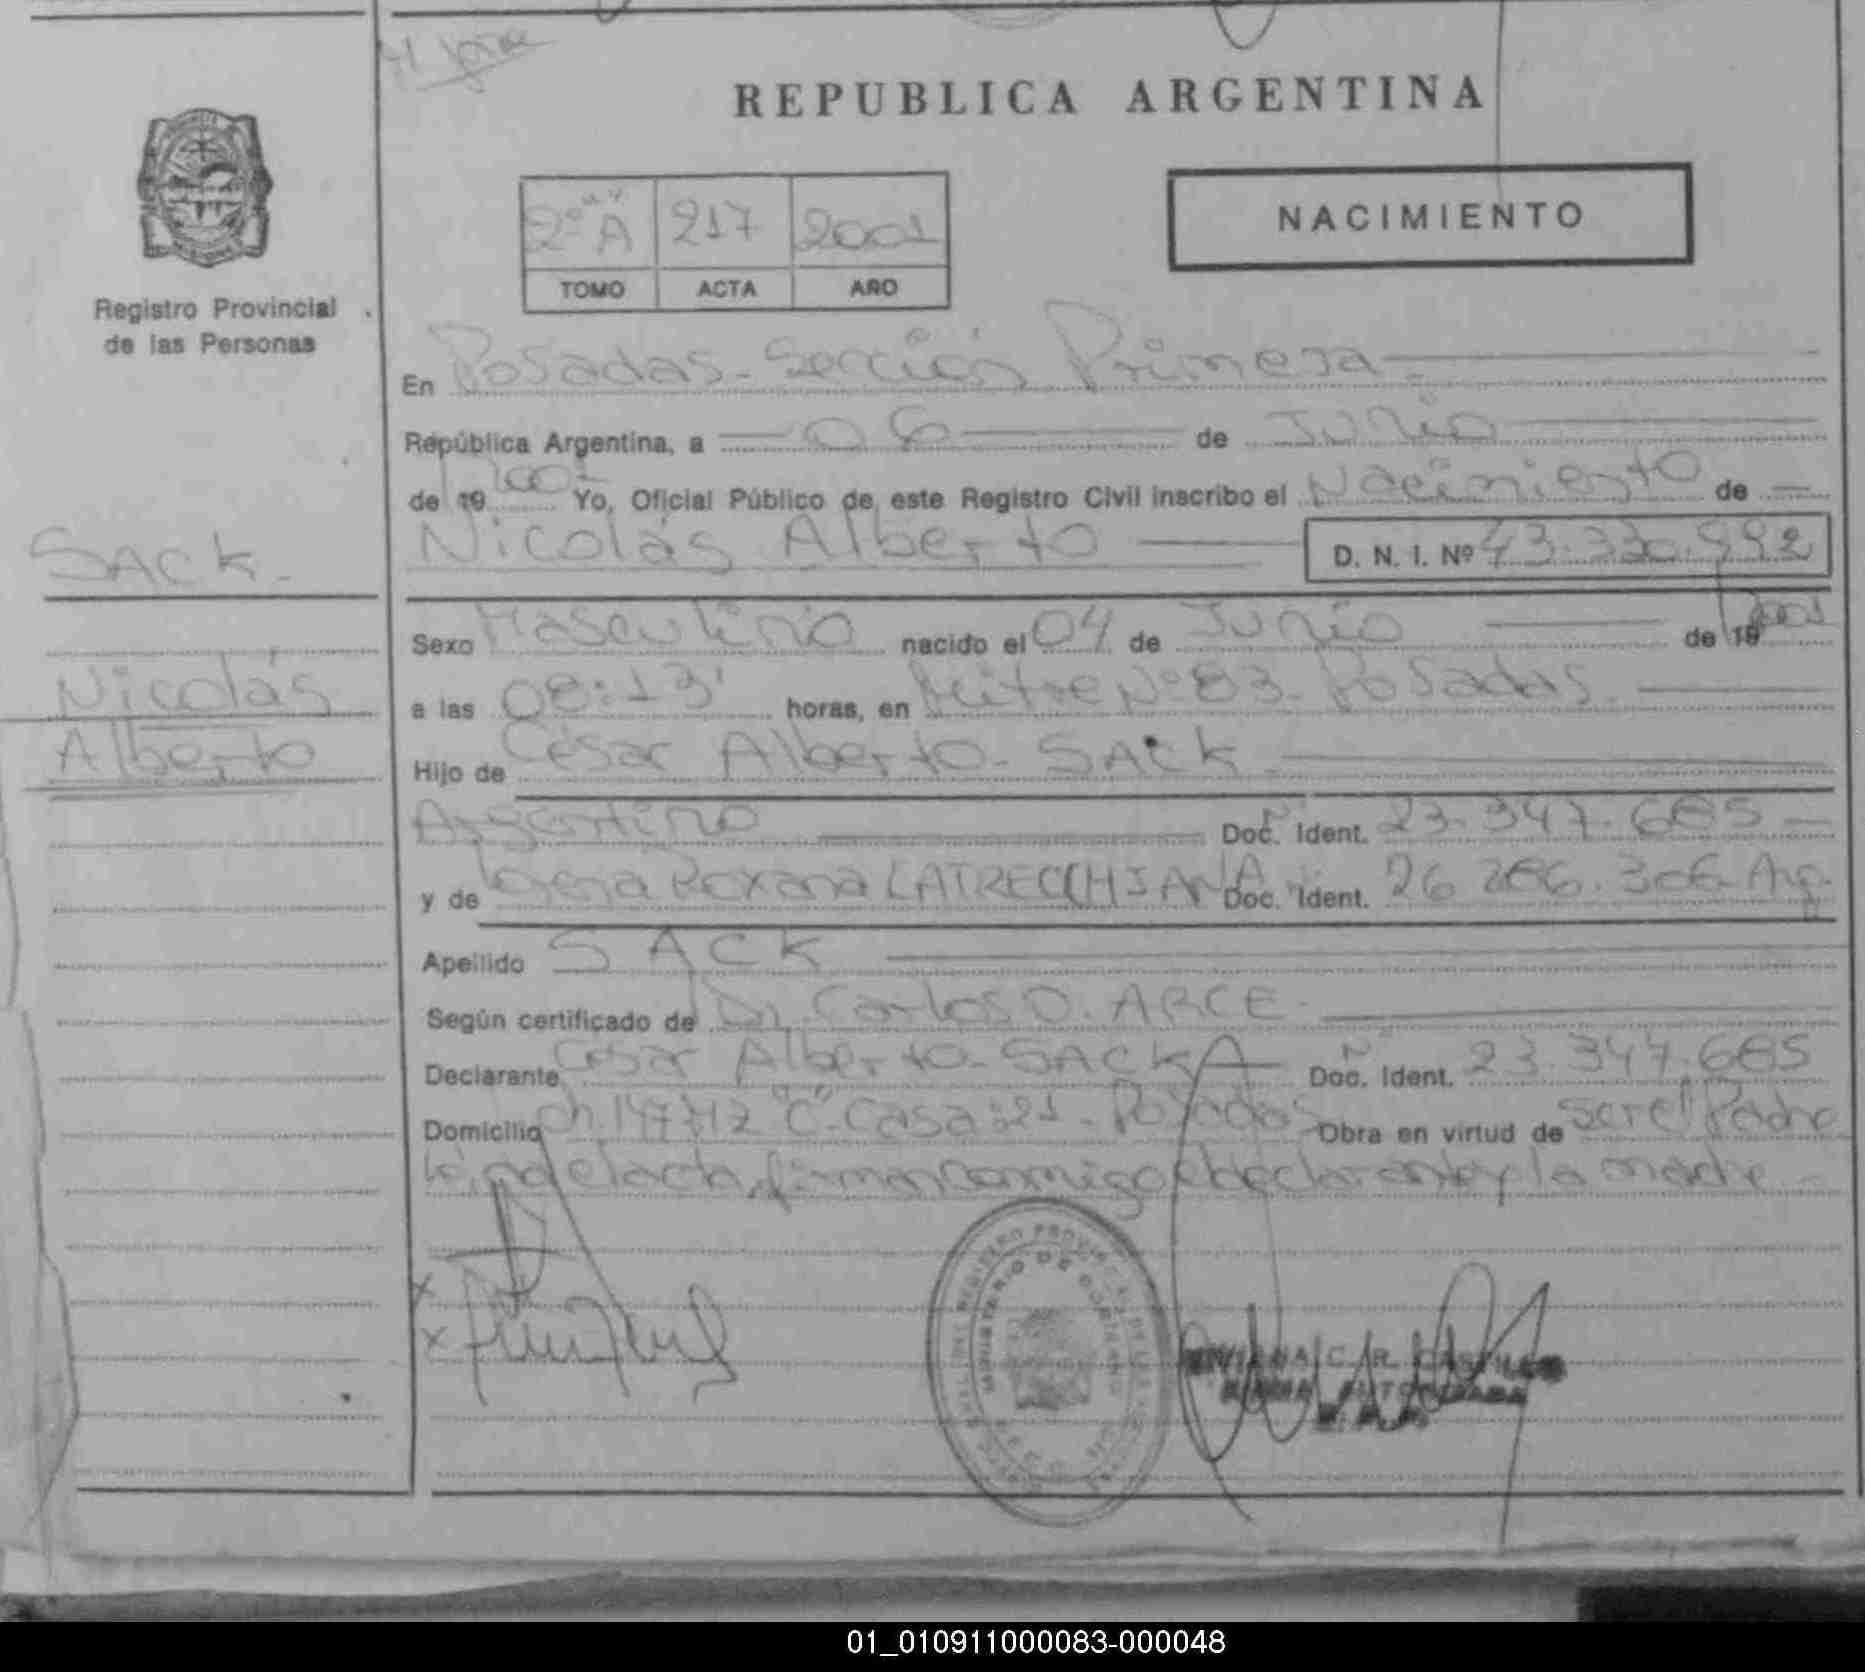 REPUBLICA ARGENTINA
Registro Provincial
de las Personas
2º "A" 217 2001
TOMO ACTA AÑO
NACIMIENTO
En Posadas - Sección Primera
República Argentina, a 06 de Junio
de 19 2001 Yo, Oficial Público de este Registro Civil inscribo el Nacimiento de
Nicolás Alberto D. N. I. Nº 43.330.992
SACK
Nicolás
Alberto
Sexo Masculino nacido el 04 de Junio de 19 2001
a las 08:13' horas, en Mitre Nº 83 - Posadas
Hijo de César Alberto - SACK
Argentino Doc. Ident. Nº 23.347.685
y de Lorena Roxana LATRECCHIANA Doc. Ident. 26.286.306 - Arg.
Apellido SACK
Según certificado de Dr. Carlos O. ARCE
Declarante César Alberto - SACK Doc. Ident. Nº 23.347.685
Domicilio Ch. 147 Mz "C" - Casa: 21 - Posadas Obra en virtud de ser el Padre
Leída el acta, firman conmigo el declarante y la madre
MINISTERIO DE GOBIERNO
C. R.
01_010911000083-000048